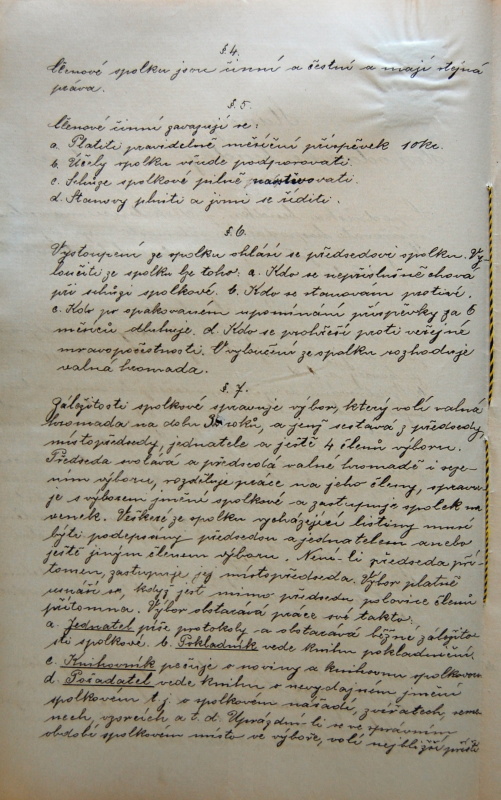 §. 4.
Členové spolku jsou činní a čestní a mají stejná
práva.
§. 5.
Členové činní zavazují se:
a. Platiti pravidelně měsíční příspěvek 10 kc.
b. Účely spolku všude podporovati.
c. Schůze spolkové pilně navštěvovati.
d. Stanovy plniti a jimi se říditi.
§. 6.
Vystoupení ze spolku ohlásí se předsedovi spolku. Vy-
loučiti ze spolku lze toho: a. Kdo se nepříslušně chová
při schůzi spolkové. b. Kdo se stanovám protiví.
c. Kdo po opakovaném upomínání příspěvky za 6
měsíců dluhuje. d. Kdo se prohřeší proti veřejné
mravopočestnosti. O vyloučení ze spolku rozhoduje
valná hromada.
§. 7.
Záležitosti spolkové spravuje výbor, který volí valná
hromada na dobu 3 roků, a jenž sestává z předsedy
místopředsedy, jednatele a ještě 4 členů výboru.
Předseda svolává a předsedá valné hromadě i
ním výboru, rozděluje práce na jeho členy, spravu-
je s výborem jmění spolkové a zastupuje spolek na
venek. Veškeré ze spolku vycházející listiny musí
býti podepsány předsedou a jednatelem anebo
ještě jiným členem výboru. Není-li předseda pří-
tomen, zastupuje jej místopředseda. Výbor platně
usnáší se, když jest mimo předsedu polovice členů
přítomna. Výbor obstarává práce své takto:
a. Jednatel píše protokoly a obstarává běžné záležito-
sti spolkové. b. Pokladník vede knihu pokladniční.
c. Knihovník pečuje o noviny a knihovnu spolkovou
d. Pořadatel vede knihu o nevydajném jmění
spolkovém t. j. o spolkovém nářadí, zvířatech, seme-
nech, vzorcích a t. d. Uprázdní-li se ve správním
období spolkovém místo ve výboře, volí nejbližší příští